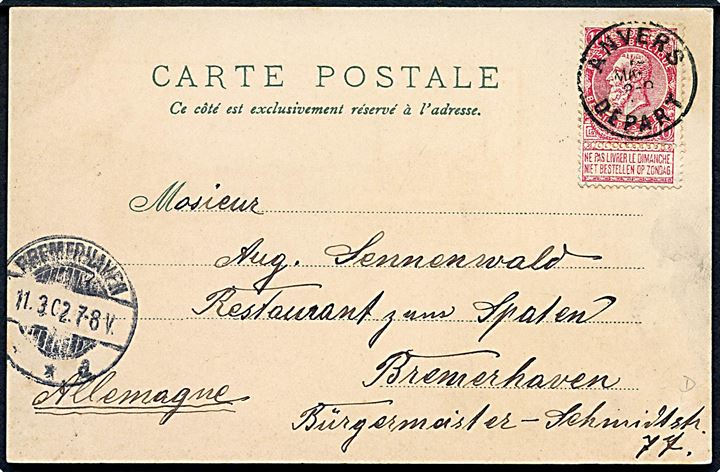 ANVERS
DEPART
NE PAS LIVRER LE DIMANCHE
NIET BESTELLEN OP ZONDAG
CARTE POSTALE
Ce côté est exclusivement réservé à l'adresse.
Mosieur
Aug. Sennenwald
Restaurant zum Spaten
Bremerhaven
Bürgermeister-Schmidtstr.
77.
Allemagne
BREMERHAVEN
11.3.02.7-8V.
* a
D